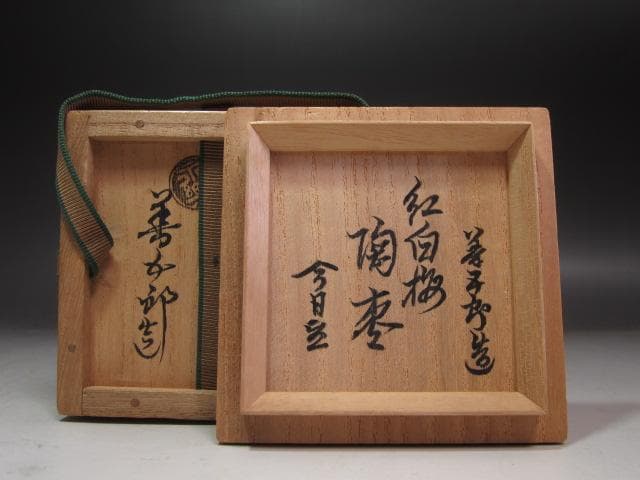 善五郎造
紅白梅
陶棗
今日庵
善五郎造